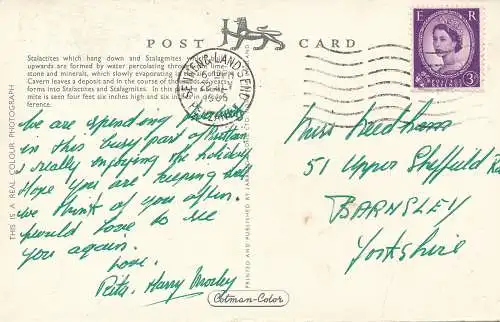 POST CARD
Stalactites which hang down and Stalagmites which build
upwards are formed by water percolating through the lime-
stone and minerals, which slowly evaporating in the
Cavern leaves a deposit and in the course of
forms into Stalactites and Stalagmites. In this
mite is seen four feet six inches high and six inches in
ference.
THIS IS A REAL COLOUR PHOTOGRAPH
PRINTED AND PUBLISHED BY
LAND'S END
PENZANCE
1965
E R
POSTAGE REVENUE
3D
We are spending
in this busy part of Britain
& really enjoying the holiday
Hope you are keeping well
we think of you often.
would love to see
you again.
Love.
Rita. Harry Morley
Miss Needham
51 Upper Sheffield Rd
BARNSLEY
Yorkshire
Cotman-Color